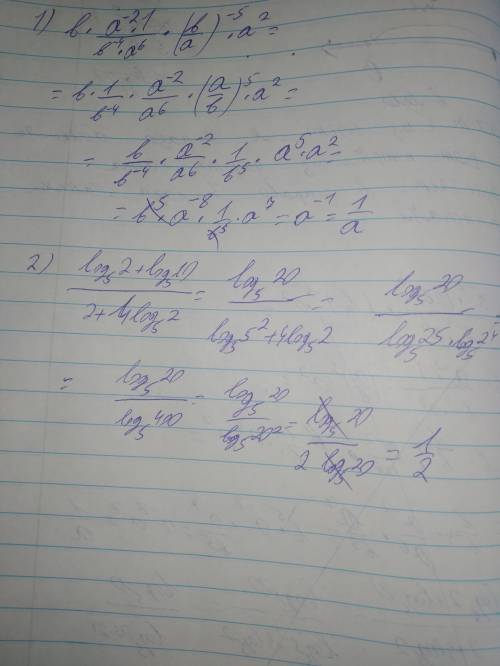 1) b · a⁻²·1 / b⁻⁴·a⁶ · (b/a)⁻⁵ · a² =
= b · 1/b⁻⁴ · a⁻²/a⁶ · (a/b)⁵ · a² =
= b/b⁻⁴ · a⁻²/a⁶ · 1/b⁵ · a⁵ · a² =
= b⁵ · a⁻⁸ · 1/b⁵ · a⁷ = a⁻¹ = 1/a
2) log₅2 + log₅10 / 2 + 4log₅2 = log₅20 / log₅5² + 4log₅2 = log₅20 / log₅25 · log₅2⁴ =
= log₅20 / log₅400 = log₅20 / log₅20² = log₅20 / 2 log₅20 = 1/2